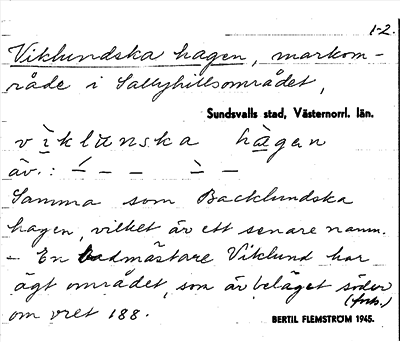 1-2.
Viklundska hagen, markom-
råde i Sallyhillsområdet,
Sundsvalls stad, Västernorrl. län.
vi̱klunska ha̱gen
äv.: –́ – – –̀ –
Samma som Backlundska
hagen, vilket är ett senare namn.
– En badmästare Viklund har
ägt området, som är beläget söder
(forts.)
om vret 188.
BERTIL FLEMSTRÖM 1945.